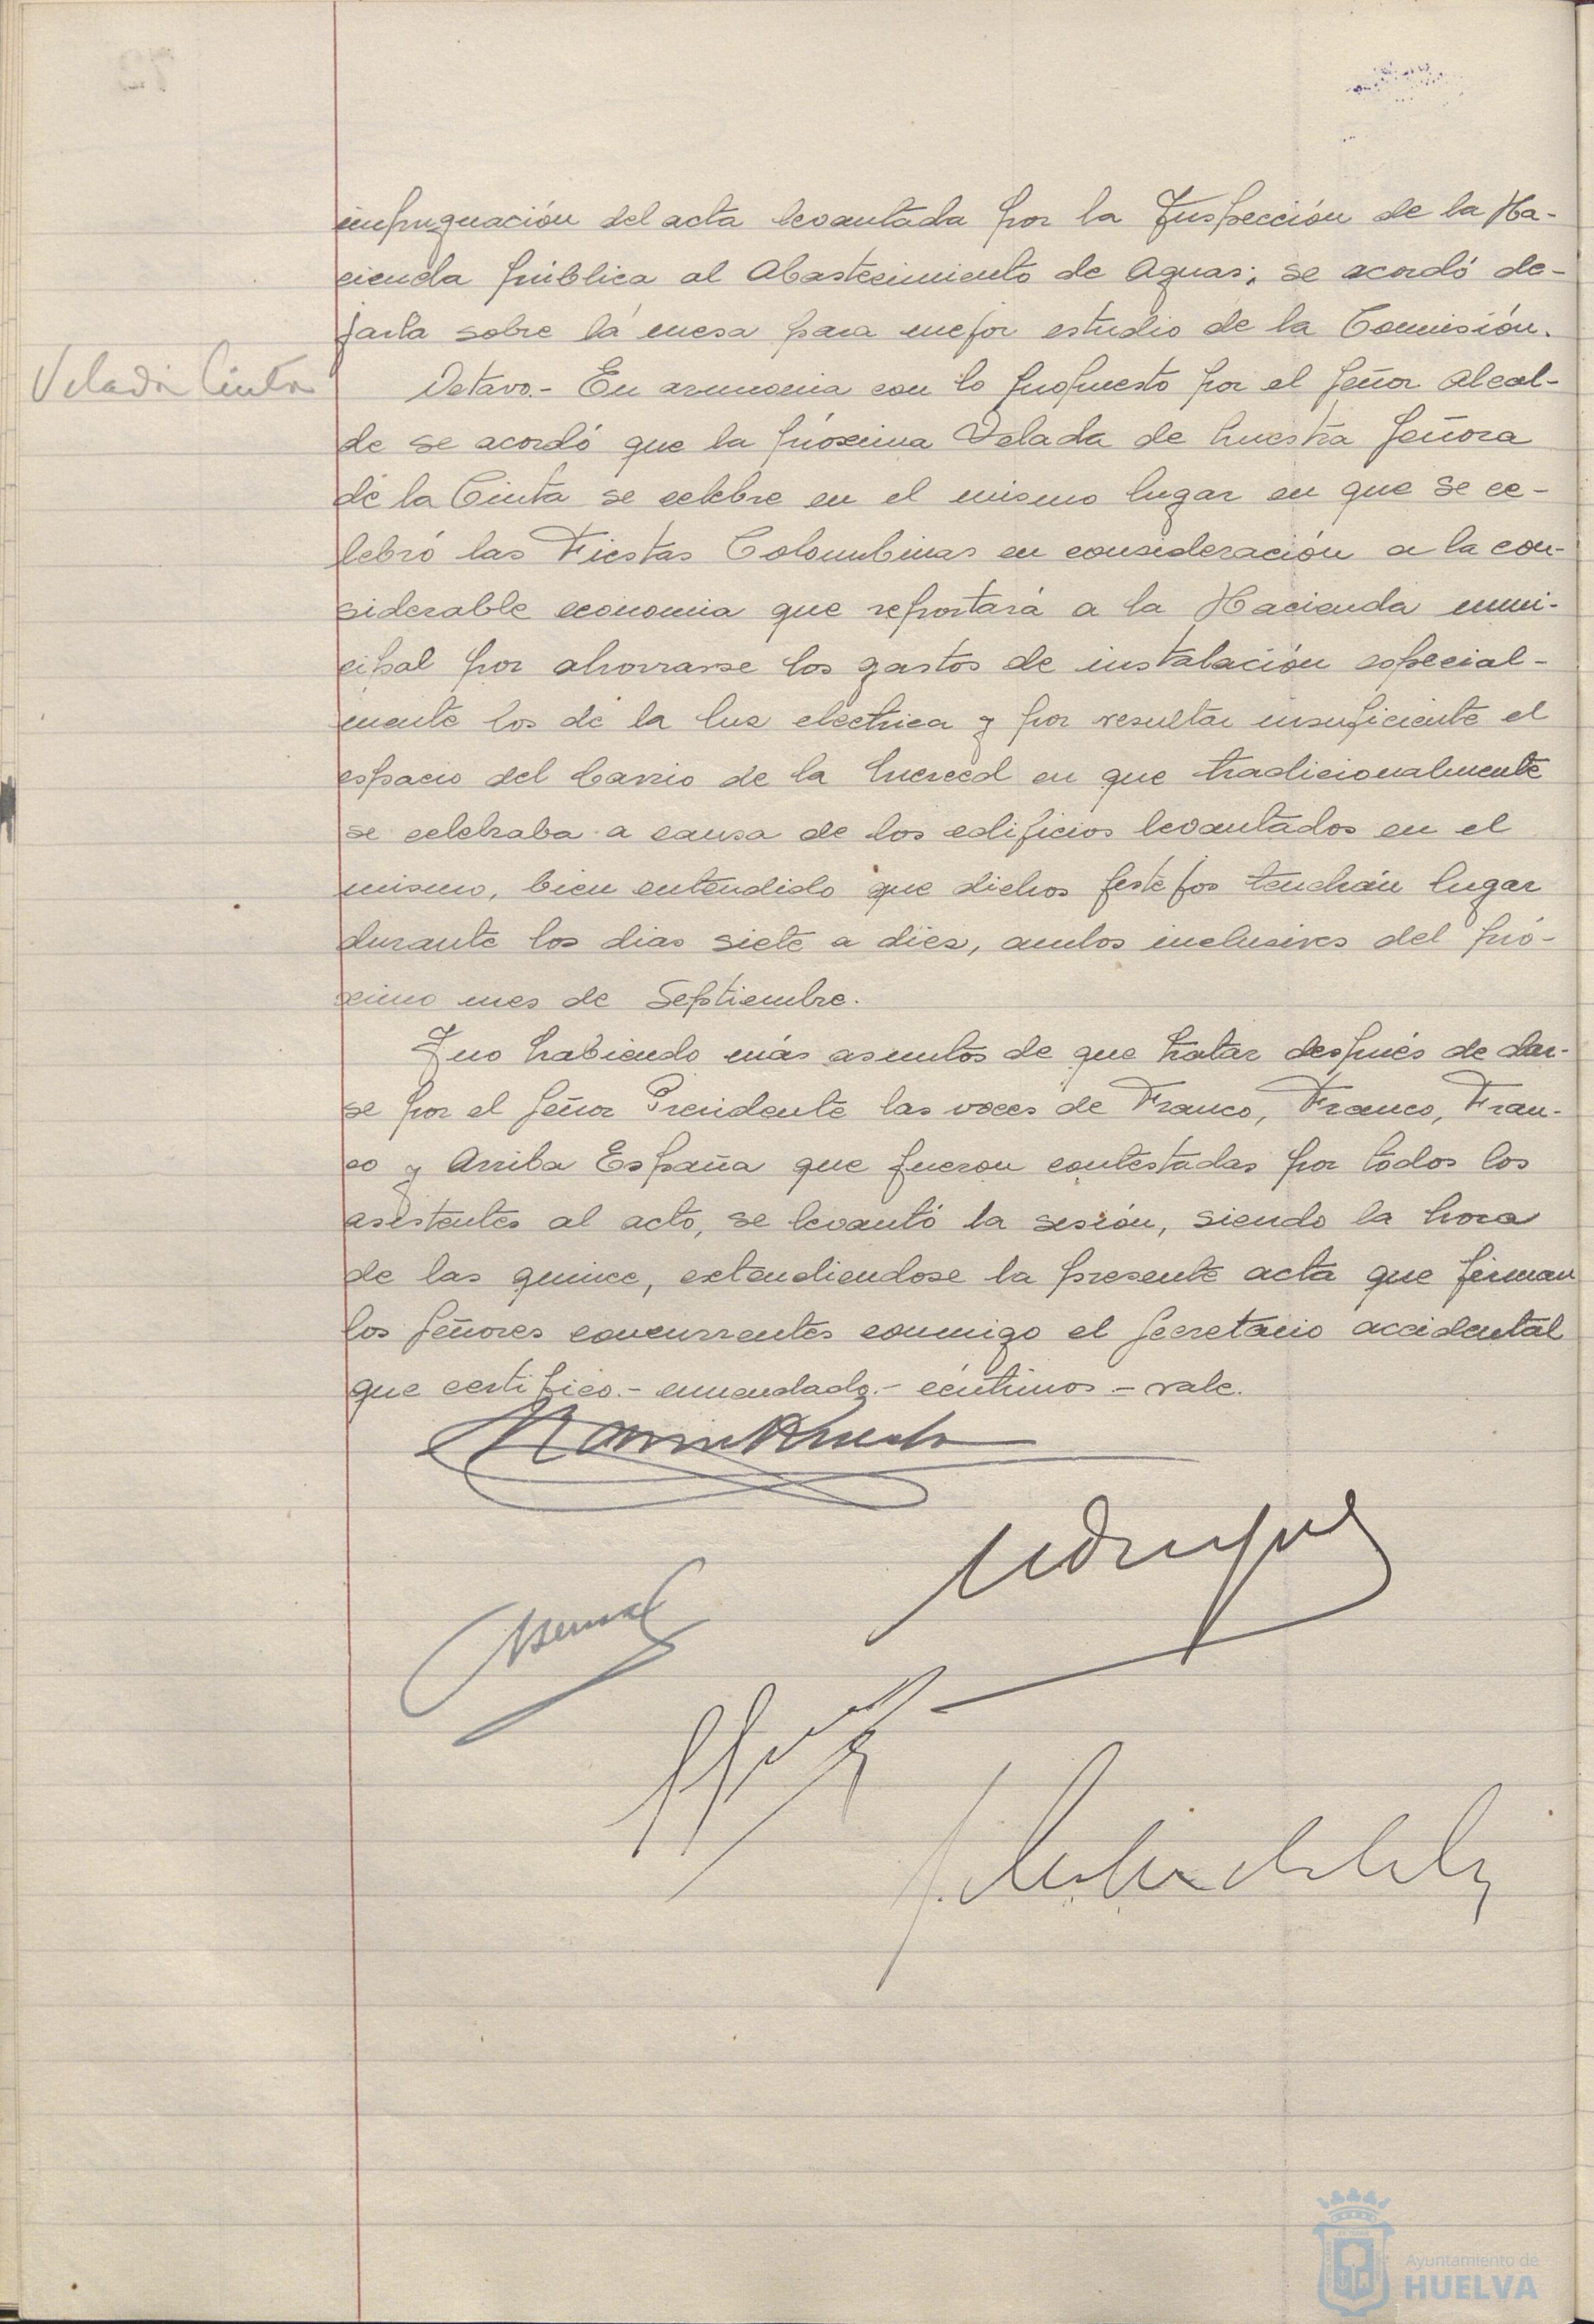 impugnación del acta levantada por la Inspección de la Ha-
cienda pública al Abastecimiento de Aguas; se acordó de-
jarla sobre la mesa para mejor estudio de la Comisión.
Velada Cinta
Octavo.- En armonia con lo propuesto por el Señor Alcal-
de se acordó que la próxima Velada de Nuestra Señora
de la Cinta se celebre en el mismo lugar en que se ce-
lebró las Fiestas Colombinas en consideración a la con-
siderable economia que reportará a la Hacienda muni-
cipal por ahorrarse los gastos de instalación especial-
mente los de la luz electrica y por resultar insuficiente el
espacio del barrio de la Merced en que tradicionalmente
se celebraba a causa de los edificios levantados en el
mismo, bien entendido que dichos festejos tendrán lugar
durante los dias siete a diez, ambos inclusives del pró-
ximo mes de Septiembre.
Y no habiendo más asuntos de que tratar después de dar-
se por el Señor Presidente las voces de Franco, Franco, Fran-
co y Arriba España que fueron contestadas por todos los
asistentes al acto, se levantó la sesión, siendo la hora
de las quince, extendiendose la presente acta que firman
los Señores concurrentes conmigo el Secretario accidental
que certifico.- enmendado.- céntimos - vale.
Bernal
Ayuntamiento de
HUELVA